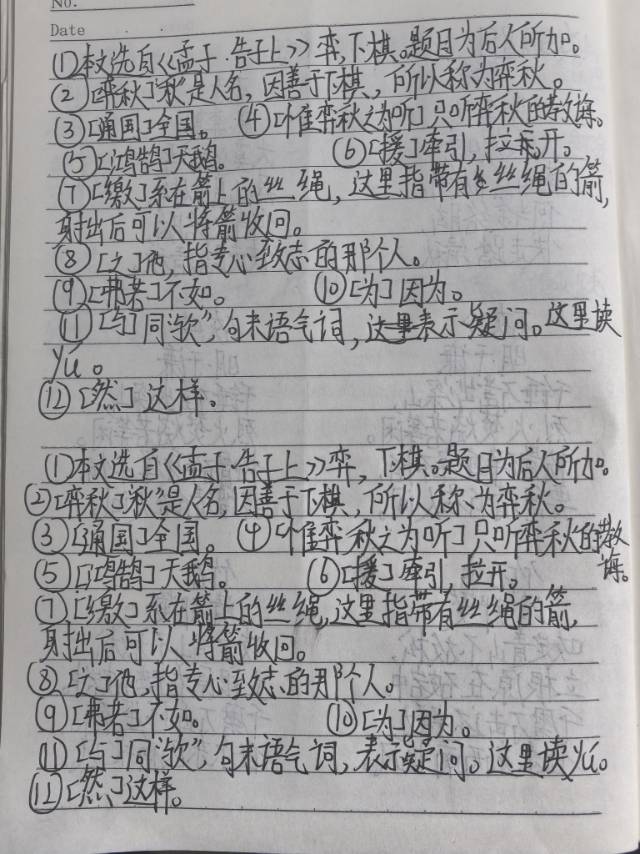 No.
Date
①本文选自《孟子·告子上》弈,下棋。题目为后人所加。
②[弈秋]“秋”是人名,因善于下棋,所以称为弈秋。
③[通国]全国。 ④[惟弈秋之为听]只听弈秋的教诲。
⑤[鸿鹄]天鹅。 ⑥[援]牵引,拉开。
⑦[缴]系在箭上的丝绳,这里指带有丝绳的箭,
射出后可以将箭收回。
⑧[之]他,指专心致志的那个人。
⑨[弗若]不如。 ⑩[为]因为。
⑪[与]同“欤”,句末语气词,这里表示疑问。这里读
yú。
⑫[然]这样。
①本文选自《孟子·告子上》弈,下棋。题目为后人所加。
②[弈秋]“秋”是人名,因善于下棋,所以称为弈秋。
③[通国]全国。 ④[惟弈秋之为听]只听弈秋的教
诲。
⑤[鸿鹄]天鹅。 ⑥[援]牵引,拉开。
⑦[缴]系在箭上的丝绳,这里指带有丝绳的箭,
射出后可以将箭收回。
⑧[之]他,指专心致志的那个人。
⑨[弗若]不如。 ⑩[为]因为。
⑪[与]同“欤”,句末语气词,表示疑问。这里读yú。
⑫[然]这样。